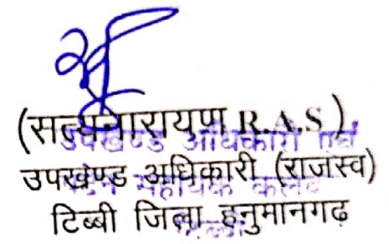 (सत्यनारायण R.A.S.)
उपखण्ड अधिकारी एवं
उपखण्ड अधिकारी (राजस्व)
टिब्बी जिला हनुमानगढ़